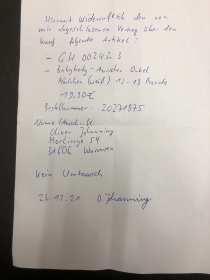 Hiermit widerrufe ich den von
mir abgeschlossenen Vertrag über den
Kauf folgende Artikel:
- GH 002433
- Babybody - Onkel
Mädchen (weiß) 12-18 Monate
19.90€
Bestellnummer: 20271875
Name/Anschrift:
Oliver Johanning
54
31606 Warmsen
Kein Umtausch
23.12.21 O. Johanning